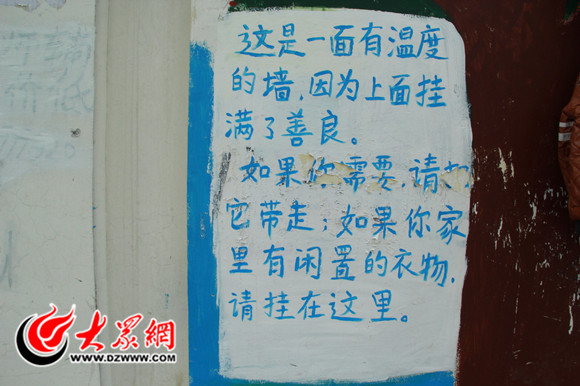 这是一面有温度
的墙,因为上面挂
满了善良。
如果你需要,请把
它带走;如果你家
里有闲置的衣物,
请挂在这里。
大众網
WWW.DZWWW.COM